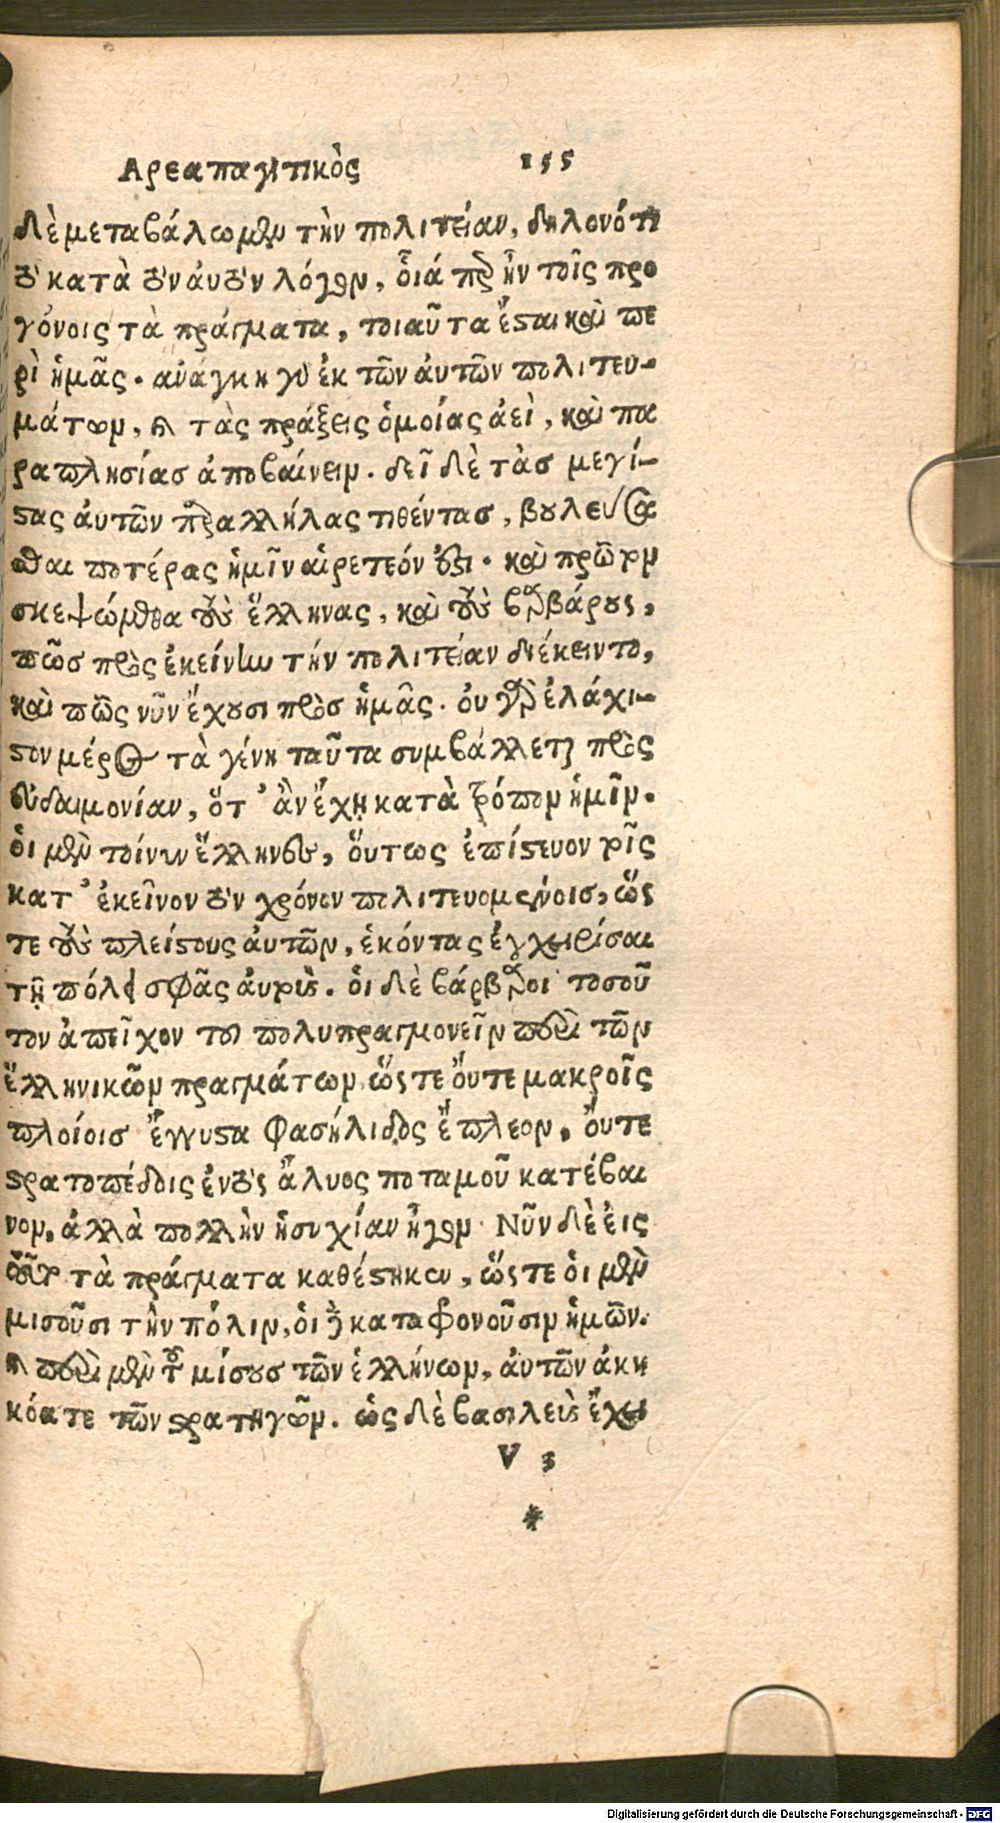 Αρεαπαγιτικὸς 155
δὲ μεταβάλωμεν τὴν πολιτείαν, δηλονότι
ὅτι κατὰ τὸν ἀυτὸν λόγον, ὁῖά περ ἦν τοῖς προ
γόνοις τὰ πράγματα, τοιαῦτα ἔσται καὶ πε
ρὶ ἡμᾶς. ανάγκη γὰρ ἐκ τῶν ἀυτῶν πολιτευ-
μάτων, καὶ τὰς πράξεις ὁμοίας ἀεὶ, καὶ πα
ραπλησίασ ἀποβαίνειν. δεῖ δὲ τὰσ μεγί-
στας ἀυτῶν παρ' αλλήλας τιθέντασ, βουλεύσα
σθαι ποτέρας ἡμῖν αἱρετεόν ἐστι. καὶ πρῶτον
σκεψώμεθα τοὺς ἕλληνας, καὶ τοὺς βαρβάρους,
πῶσ πρὸς ἐκείνην τὴν πολιτείαν διέκειντο,
καὶ πῶς νῦν ἔχουσι πρὸσ ἡμᾶς. ὀυ γὰρ ἐλάχι-
στον μέρος τὰ γένη ταῦτα συμβάλλεται πρὸς
ἐυδαιμονίαν, ὅτ' ἂν ἔχῃ κατὰ τρόπον ἡμῖν.
ὁι μὲν τοίνυν ἕλληνες, ὅυτως ἐπίστευον τοῖς
κατ' ἐκεῖνον τὸν χρόνον πολιτευομένοισ, ὥς
τε τοὺς πλείστους ἀυτῶν, ἑκόντας ἐγχειρίσαι
τῇ πόλει σφᾶς ἀυτούς. ὁι δὲ βάρβαροι τοσοῦ
τον ἀπεῖχον τοῦ πολυπραγμονεῖν περὶ τῶν
ἑλληνικῶν πραγμάτων, ὥς τε ὄυτε μακροῖς
πλοίοισ ἔγγυστα Φασήλιδος ἔπλεον, ὄυτε
στρατοπέδοις ἐντὸς ἅλυος ποταμοῦ κατέβαι
νον, ἀλλὰ πολλὴν ἡσυχίαν ἦγον. Νῦν δὲ ἐις
τοῦτο τὰ πράγματα καθέστηκεν, ὥς τε ὁι μὲν
μισοῦσι τὴν πόλιν, ὁι δὲ καταφονοῦσιν ἡμῶν.
καὶ περὶ μὲν τοῦ μίσουσ τῶν ἑλλήνων, ἀυτῶν ἀκη
κόατε τῶν στρατηγῶν. ὡς δὲ βασιλεὺς ἔχει
V 3
*
Digitalisierung gefördert durch die Deutsche Forschungsgemeinschaft - DFG